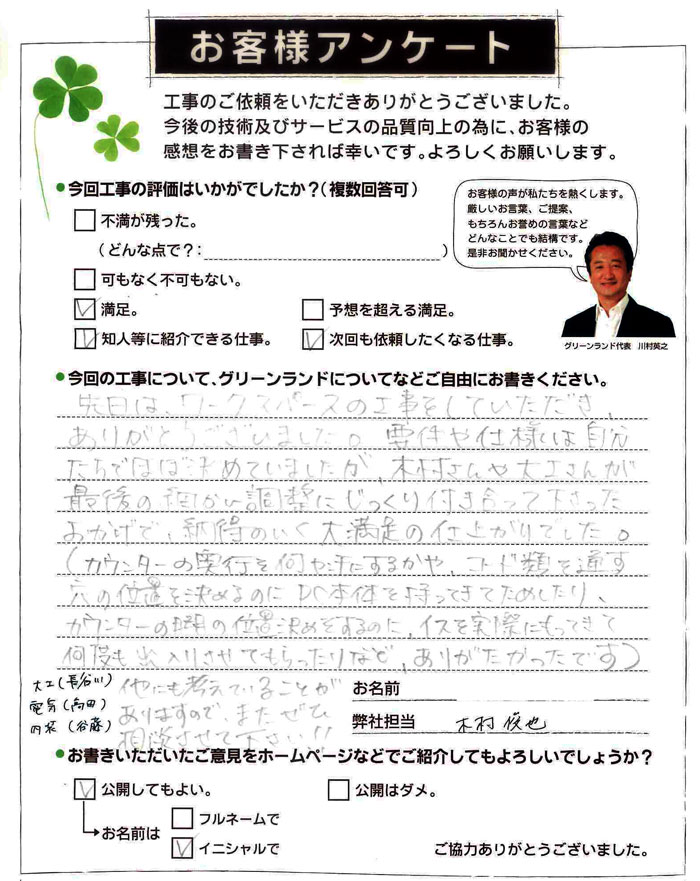 お客様アンケート
工事のご依頼をいただきありがとうございました。
今後の技術及びサービスの品質向上の為に、お客様の
感想をお書き下されば幸いです。よろしくお願いします。
今回工事の評価はいかがでしたか？（複数回答可）
不満が残った。
（どんな点で？： ）
可もなく不可もない。
満足。
予想を超える満足。
知人等に紹介できる仕事。
次回も依頼したくなる仕事。
お客様の声が私たちを熱くします。
厳しいお言葉、ご提案、
もちろんお誉めの言葉など
どんなことでも結構です。
是非お聞かせください。
グリーンランド代表 川村英之
今回の工事について、グリーンランドについてなどご自由にお書きください。
先日は、ワークスペースの工事をしていただき、
ありがとうございました。要件や仕様は自分
たちでほぼ決めていましたが、木村さんや大工さんが
最後の細かい調整にじっくり付き合って下さった
おかげで、納得のいく大満足の仕上がりでした。
（カウンターの奥行を何センチにするかや、コード類を通す
穴の位置を決めるのにPC本体を持ってきてためしたり、
カウンターの の位置決めをするのに、イスを実際にもってきて
何度も出入りさせてもらったりなど、ありがたかったです）
他にも考えていることが
ありますので、またぜひ
相談させて下さい！！
大工（長谷川）
電気（高田）
内装（谷藤）
お名前
弊社担当 木村 俊也
お書きいただいたご意見をホームページなどでご紹介してもよろしいでしょうか？
公開してもよい。
公開はダメ。
お名前は
フルネームで
イニシャルで
ご協力ありがとうございました。